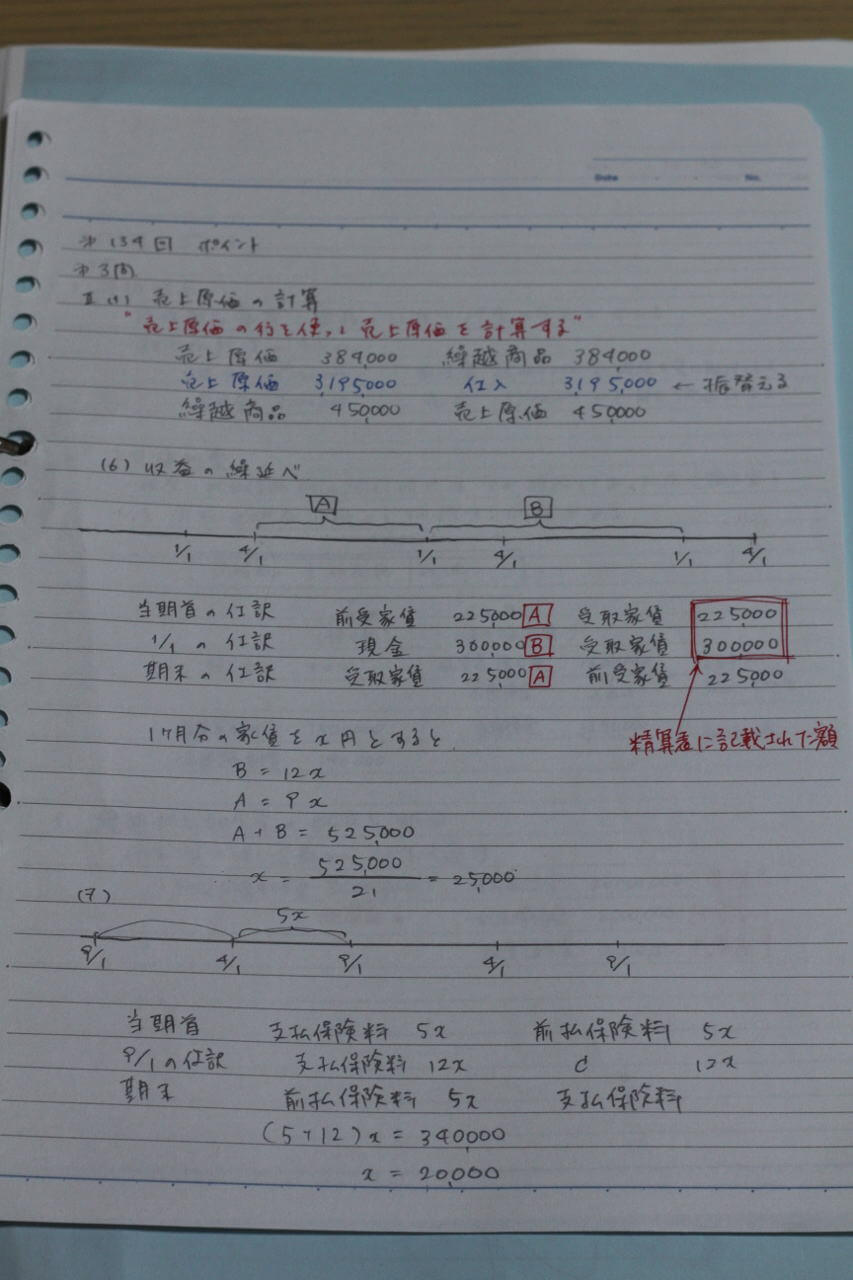 Date No.
第134回 ポイント
第3問
Ⅱ(1) 売上原価の計算
"売上原価の行を使い売上原価を計算する"
売上原価 384,000 繰越商品 384,000
売上原価 3,195,000 仕入 3,195,000 ← 振替える
繰越商品 450,000 売上原価 450,000
(6) 収益の繰延べ
A B
1/1 4/1 1/1 4/1 1/1 4/1
当期首の仕訳 前受家賃 225,000 A 受取家賃 225,000
1/1の仕訳 現金 300,000 B 受取家賃 300,000
期末の仕訳 受取家賃 225,000 A 前受家賃 225,000
精算表に記載された額
1ヶ月分の家賃をx円とすると、
B = 12x
A = 9x
A + B = 525,000
x = 525,000/21 = 25,000
(7)
5x
9/1 4/1 9/1 4/1 9/1
当期首 支払保険料 5x 前払保険料 5x
9/1の仕訳 支払保険料 12x C 12x
期末 前払保険料 5x 支払保険料
(5+12)x = 340,000
x = 20,000